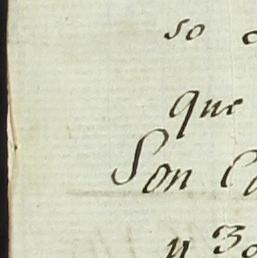 so
que
Son
y 30